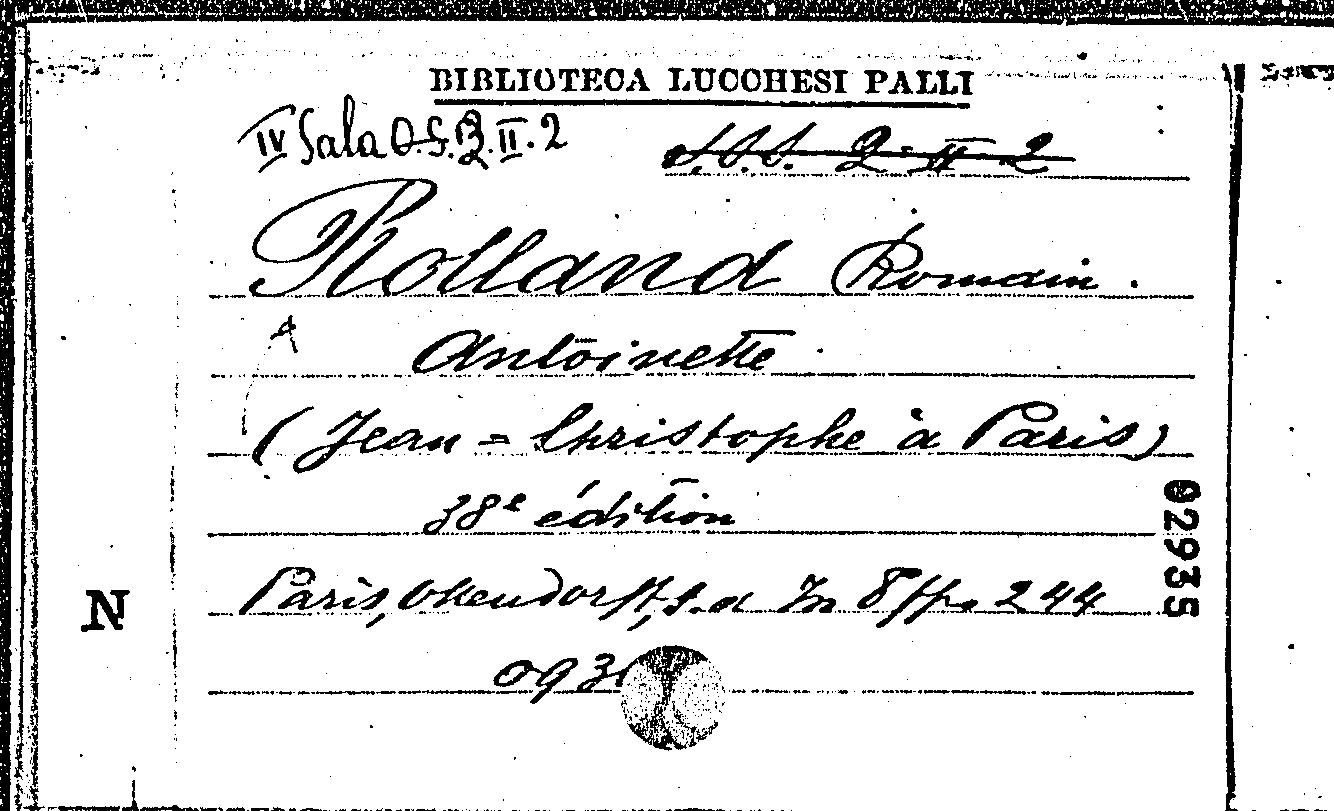 BIBLIOTECA LUCCHESI PALLI
IV Sala O.S.B.II.2
2 II 2
Rolland Romain.
Antoinette
(Jean=Christophe à Paris)
38e édition
Paris, Ollendorff, s.d In 8 pp. 244
093
02935
N